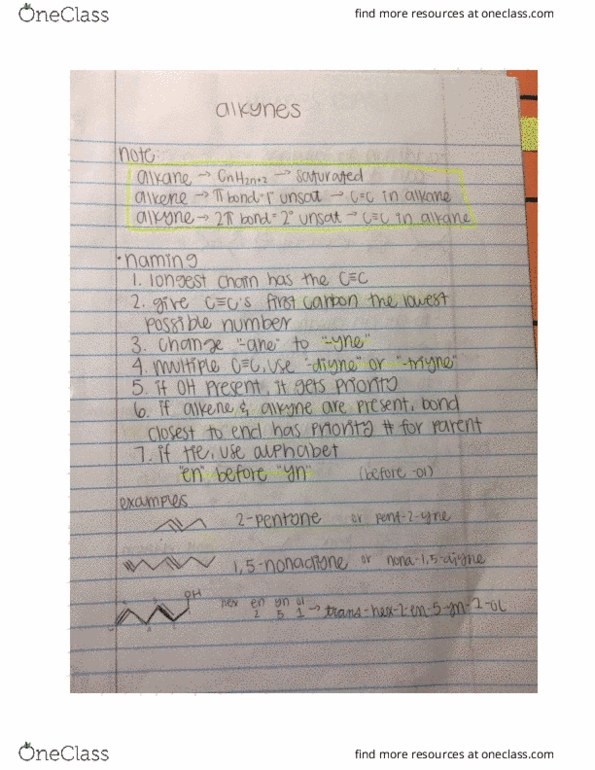 OneClass
find more resources at oneclass.com
alkynes
note:
alkane → CnH2n+2 → saturated
alkene → π bond = 1° unsat → C=C in alkane
alkyne → 2π bond = 2° unsat → C≡C in alkane
• naming
1. longest chain has the C≡C
2. give C≡C's first carbon the lowest
possible number
3. change "-ane" to "-yne"
4. multiple C≡C, use "-diyne" or "-triyne"
5. if OH present, it gets priority
6. if alkene & alkyne are present, bond
closest to end has priority # for parent
7. if tie, use alphabet
"en" before "yn" (before -ol)
examples
2-pentone or pent-2-yne
1,5-nonadiyne or nona-1,5-diyne
OH
hex en yn ol
2 5 1 → trans-hex-2-en-5-yn-2-ol
OneClass
find more resources at oneclass.com